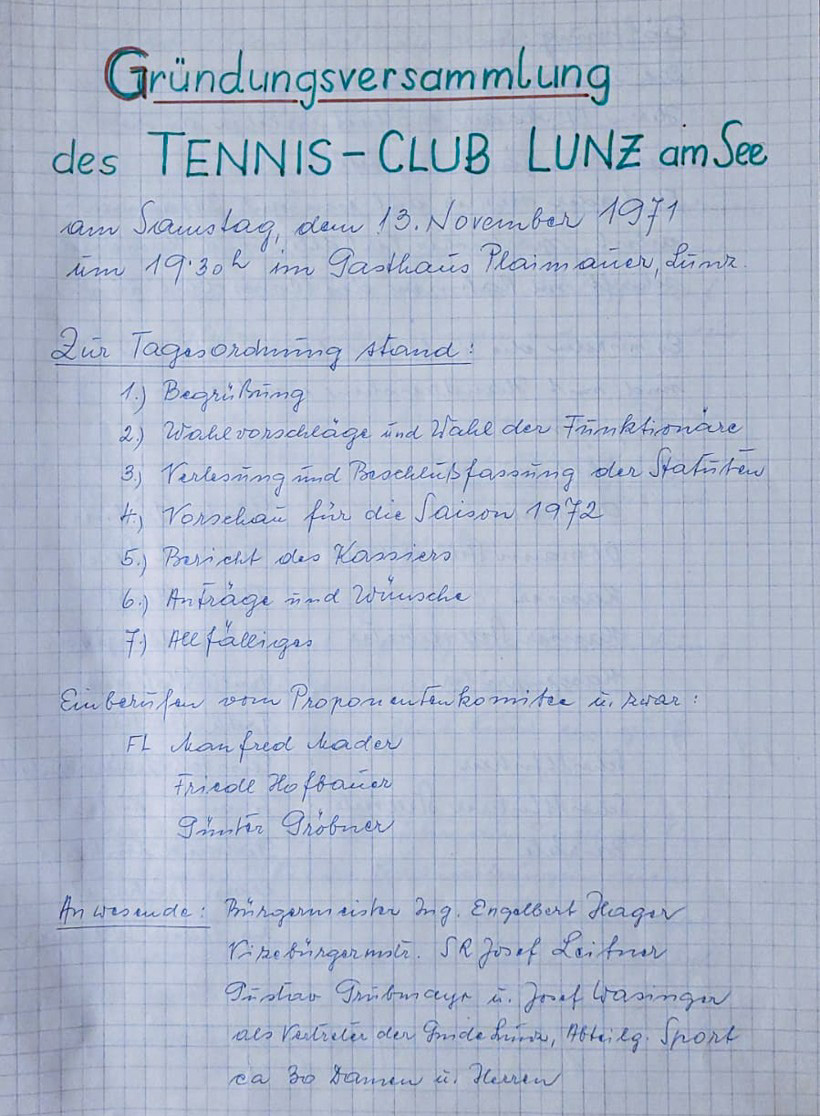 Gründungsversammlung
des TENNIS-CLUB LUNZ am See
am Samstag, dem 13. November 1971
um 19.30h im Gasthaus Plaimauer, Lunz.
Zur Tagesordnung stand:
1.) Begrüßung
2.) Wahlvorschläge und Wahl der Funktionäre
3.) Verlesung und Beschlußfassung der Statuten
4.) Vorschau für die Saison 1972
5.) Bericht des Kassiers
6.) Anträge und Wünsche
7.) Allfälliges
Einberufen vom Proponentenkomitee u. zwar:
FL Manfred Mader
Friedl Hofbauer
Günter Gröbner
Anwesende: Bürgermeister Ing. Engelbert Hager
Vizebürgermstr. SR Josef Leitner
Gustav Grubmayr u. Josef Wasinger
als Vertreter der Gmde Lunz, Abteilg. Sport
ca 30 Damen u. Herren